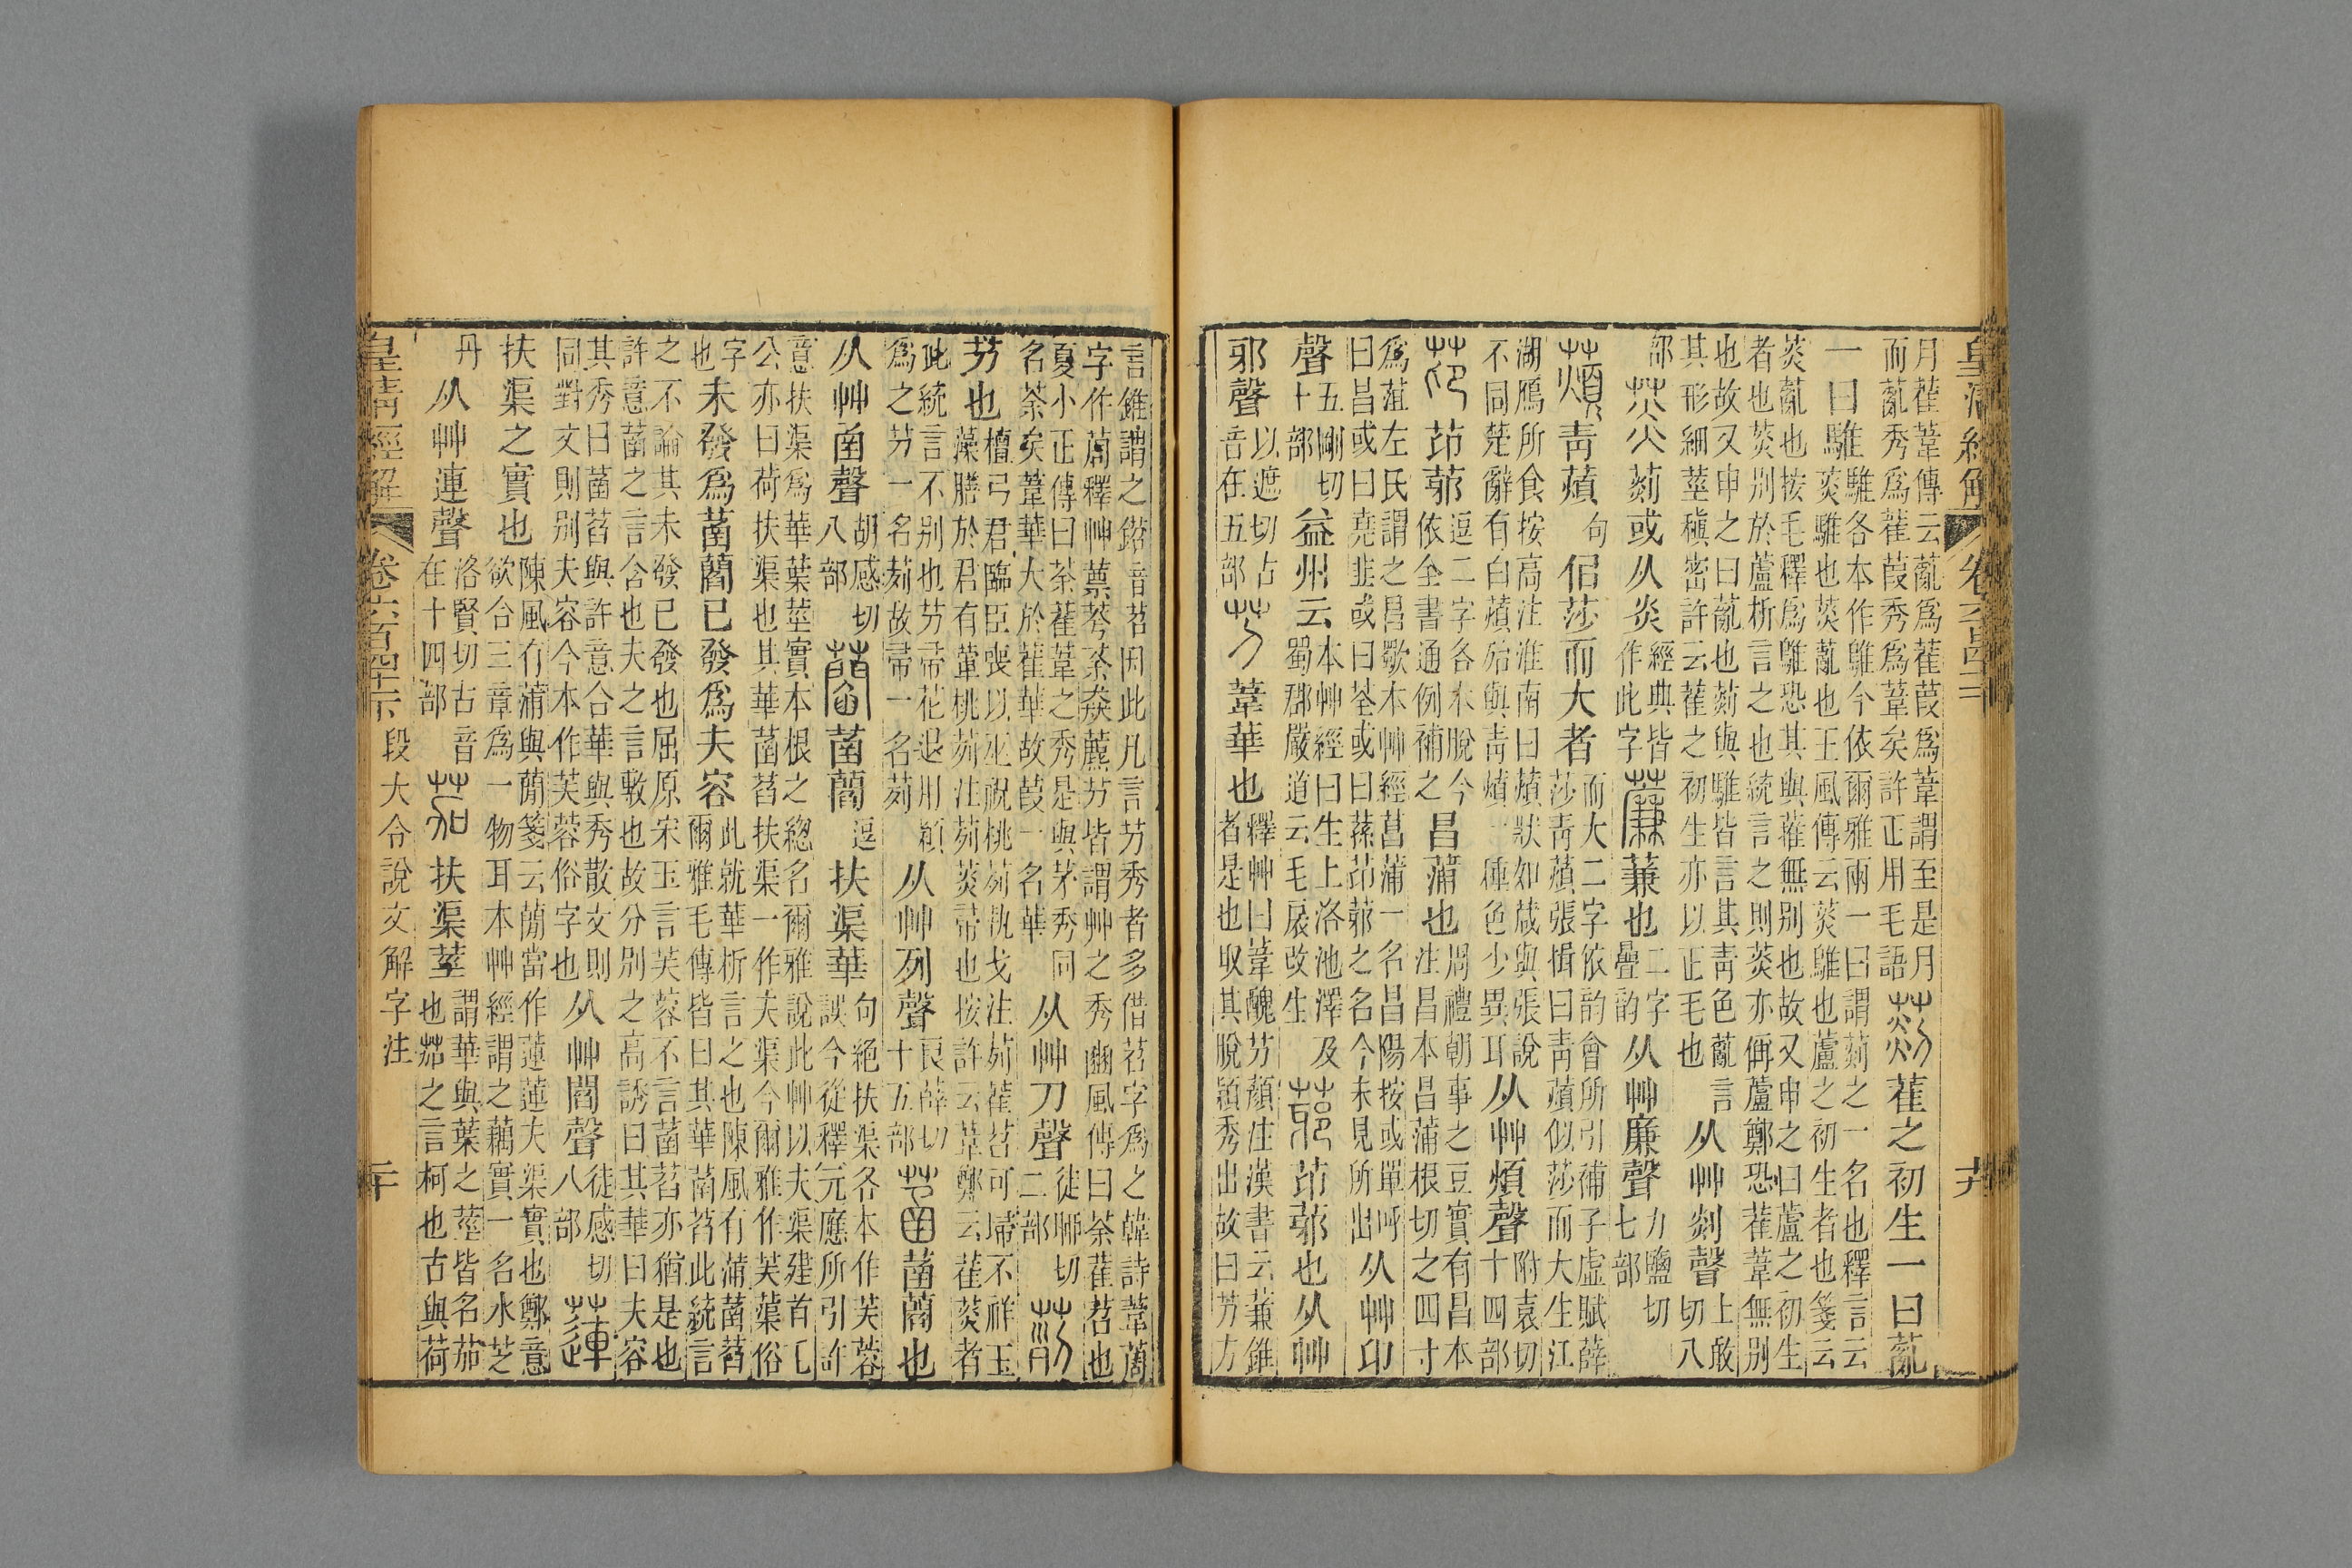 皇清經解 卷六百四十二 九
月萑葦傳云薍爲萑葭爲葦謂至是月
而薍秀爲萑葭秀爲葦矣許正用毛語
𦸁萑之初生一曰薍
一曰騅
騅各本作鵻今依爾雅兩一曰謂菼之一名也釋言云
菼騅也菼薍也王風傳云菼鵻也蘆之初生者也箋云
菼薍也按毛釋爲鵻恐其與萑無别也故又申之曰蘆之初生
者也菼别於蘆析言之也統言之則菼亦偁蘆鄭恐萑葦無别
也故又申之曰薍也菼與騅皆言其靑色薍言
其形細莖稹密許云萑之初生亦以正毛也
从艸剡聲
上敢切八
部
菼𦸁或从炎
經典皆
作此字
薕蒹也
二字
疊韵
从艸廉聲
力鹽切
七部
薠靑薠
句
侣莎而大者
而大二字依韵會所引補子虛賦薛
莎靑薠張揖曰靑薠似莎而大生江
湖鴈所食按高注淮南曰薠狀如葴與張說
不同楚辭有白薠殆與靑薠一種色少異耳
从艸煩聲
附袁切
十四部
茚茚䓷
逗二字各本脫今
依全書通例補之
昌蒲也
周禮朝事之豆實有昌本
注昌本昌蒲根切之四寸
爲菹左氏謂之昌歜本艸經菖蒲一名昌陽按或單呼
曰昌或曰堯韭或曰荃或曰蓀茚䓷之名今未見所出
从艸卬
聲
五剛切
十部
益州云
本艸經曰生上洛池澤及
蜀郡嚴道云毛扆改生
䓷茚䓷也从艸
邪聲
以遮切古
音在五部
芀葦華也
釋艸曰葦醜芀顏注漢書云蒹錐
者是也取其脫穎秀出故曰芀方
言錐謂之鍣音苕因此凡言芀秀者多借苕字爲之韓詩葦䔥
字作䔥釋艸蔈荂荼猋藨芀皆謂艸之秀豳風傳曰荼萑苕也
夏小正傳曰荼萑葦之秀是與茅秀同
名荼矣葦華大於萑華故葭一名華
从艸刀聲
徒聊切
二部
茢芀也
檀弓君臨臣喪以巫祝桃茢執戈注茢萑苕可埽不祥玉
藻膳於君有葷桃茢注茢菼帚也按許云葦鄭云萑菼者
此統言不别也芀帚花退用穎
爲之芀一名茢故帚一名茢
从艸列聲
良薛切
十五部
菡菡䕾也
从艸圅聲
胡感切
八部
䕾菡䕾
逗
扶渠華
句絕扶渠各本作芙蓉
誤今從釋元應所引許
意扶渠爲華葉莖實本根之緫名爾雅說此艸以夫渠建首毛
公亦曰荷扶渠也其華菡萏扶渠一作夫渠今爾雅作芙蕖俗
字
也
未發爲菡䕾已發爲夫容
此就華析言之也陳風有蒲菡萏
爾雅毛傳皆曰其華菡萏此統言
之不論其未發已發也屈原宋玉言芙蓉不言菡萏亦猶是也
許意菡之言含也夫之言敷也故分别之高誘曰其華曰夫容
其秀曰菡萏與許意合華與秀散文則
同對文則别夫容今本作芙蓉俗字也
从艸閻聲
徒感切
八部
蓮扶渠之實也
陳風有蒲與蕳箋云蕳當作蓮蓮夫渠實也鄭意
欲合三章爲一物耳本艸經謂之藕實一名水芝
丹
从艸連聲
洛賢切古音
在十四部
茄扶渠莖
謂華與葉之莖皆名茄
也茄之言柯也古與荷
皇清經解 卷六百四十二 段大令說文解字注 二十